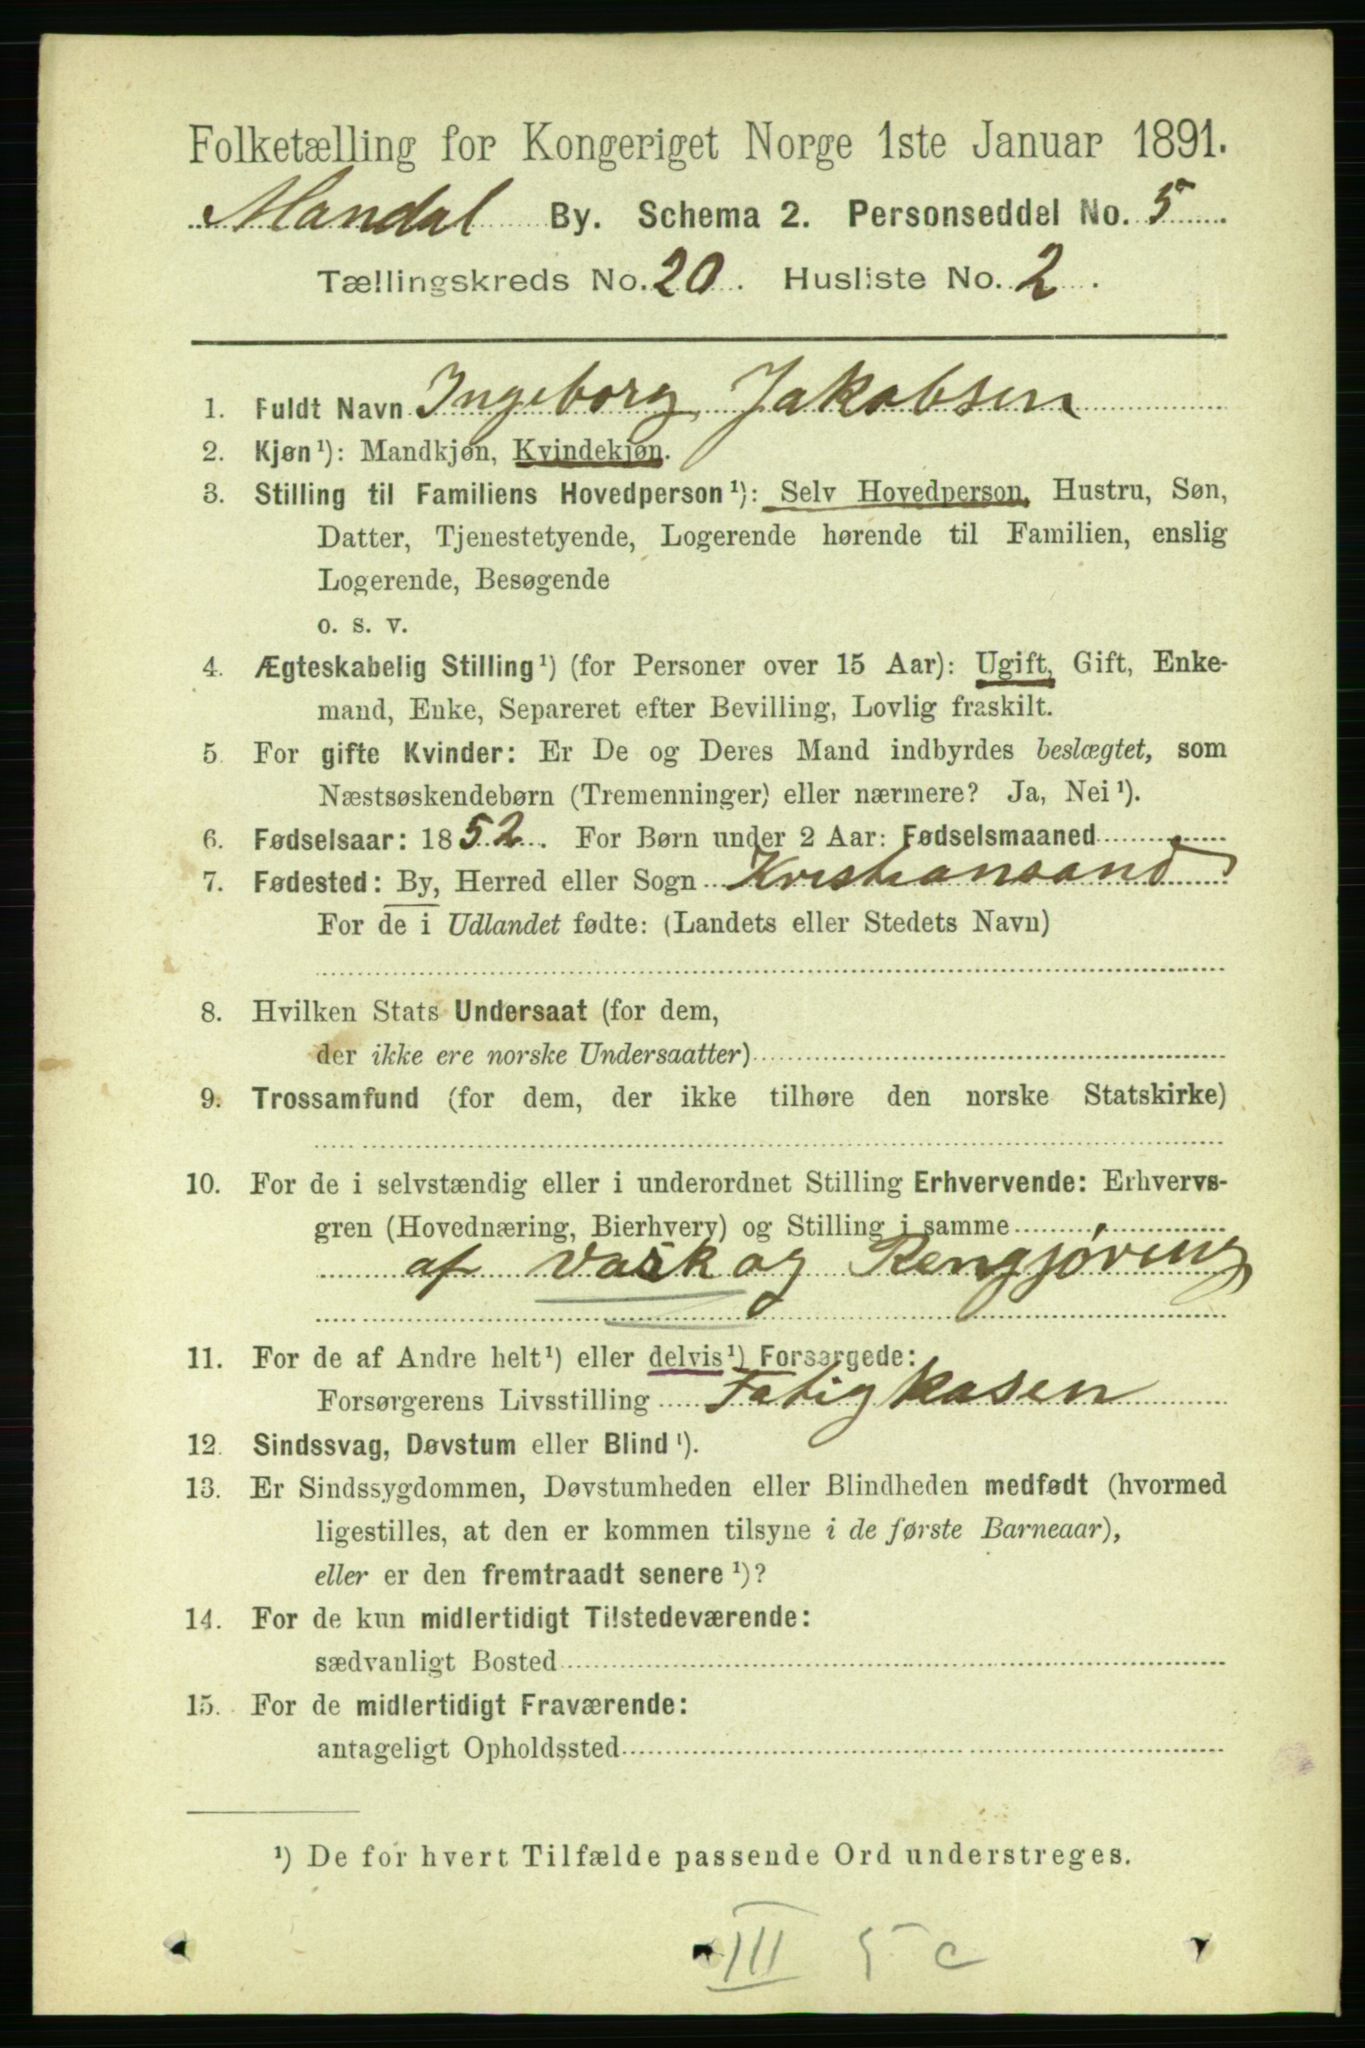 Folketælling for Kongeriget Norge 1ste Januar 1891.
Mandal By. Schema 2. Personseddel No. 5
Tællingskreds No. 20. Husliste No. 2.
1. Fuldt Navn Ingeborg Jakobsen
2. Kjøn¹): Mandkjøn, Kvindekjøn.
3. Stilling til Familiens Hovedperson¹): Selv Hovedperson, Hustru, Søn,
Datter, Tjenestetyende, Logerende hørende til Familien, enslig
Logerende, Besøgende
o. s. v.
4. Ægteskabelig Stilling¹) (for Personer over 15 Aar): Ugift, Gift, Enke-
mand, Enke, Separeret efter Bevilling, Lovlig fraskilt.
5. For gifte Kvinder: Er De og Deres Mand indbyrdes beslægtet, som
Næstsøskendebørn (Tremenninger) eller nærmere? Ja, Nei¹).
6. Fødselsaar: 1852. For Børn under 2 Aar: Fødselsmaaned
7. Fødested: By, Herred eller Sogn Kristiansand
For de i Udlandet fødte: (Landets eller Stedets Navn)
8. Hvilken Stats Undersaat (for dem,
der ikke ere norske Undersaatter)
9. Trossamfund (for dem, der ikke tilhøre den norske Statskirke)
10. For de i selvstændig eller i underordnet Stilling Erhvervende: Erhvervs-
gren (Hovednæring, Bierhverv) og Stilling i samme
af Vask og Rengjøring
11. For de af Andre helt¹) eller delvis¹) Forsørgede:
Forsørgerens Livsstilling Fatigkasen
12. Sindssvag, Døvstum eller Blind¹).
13. Er Sindssygdommen, Døvstumheden eller Blindheden medfødt (hvormed
ligestilles, at den er kommen tilsyne i de første Barneaar),
eller er den fremtraadt senere¹)?
14. For de kun midlertidigt Tilstedeværende:
sædvanligt Bosted
15. For de midlertidigt Fraværende:
antageligt Opholdssted
¹) De for hvert Tilfælde passende Ord understreges.
III 5 c